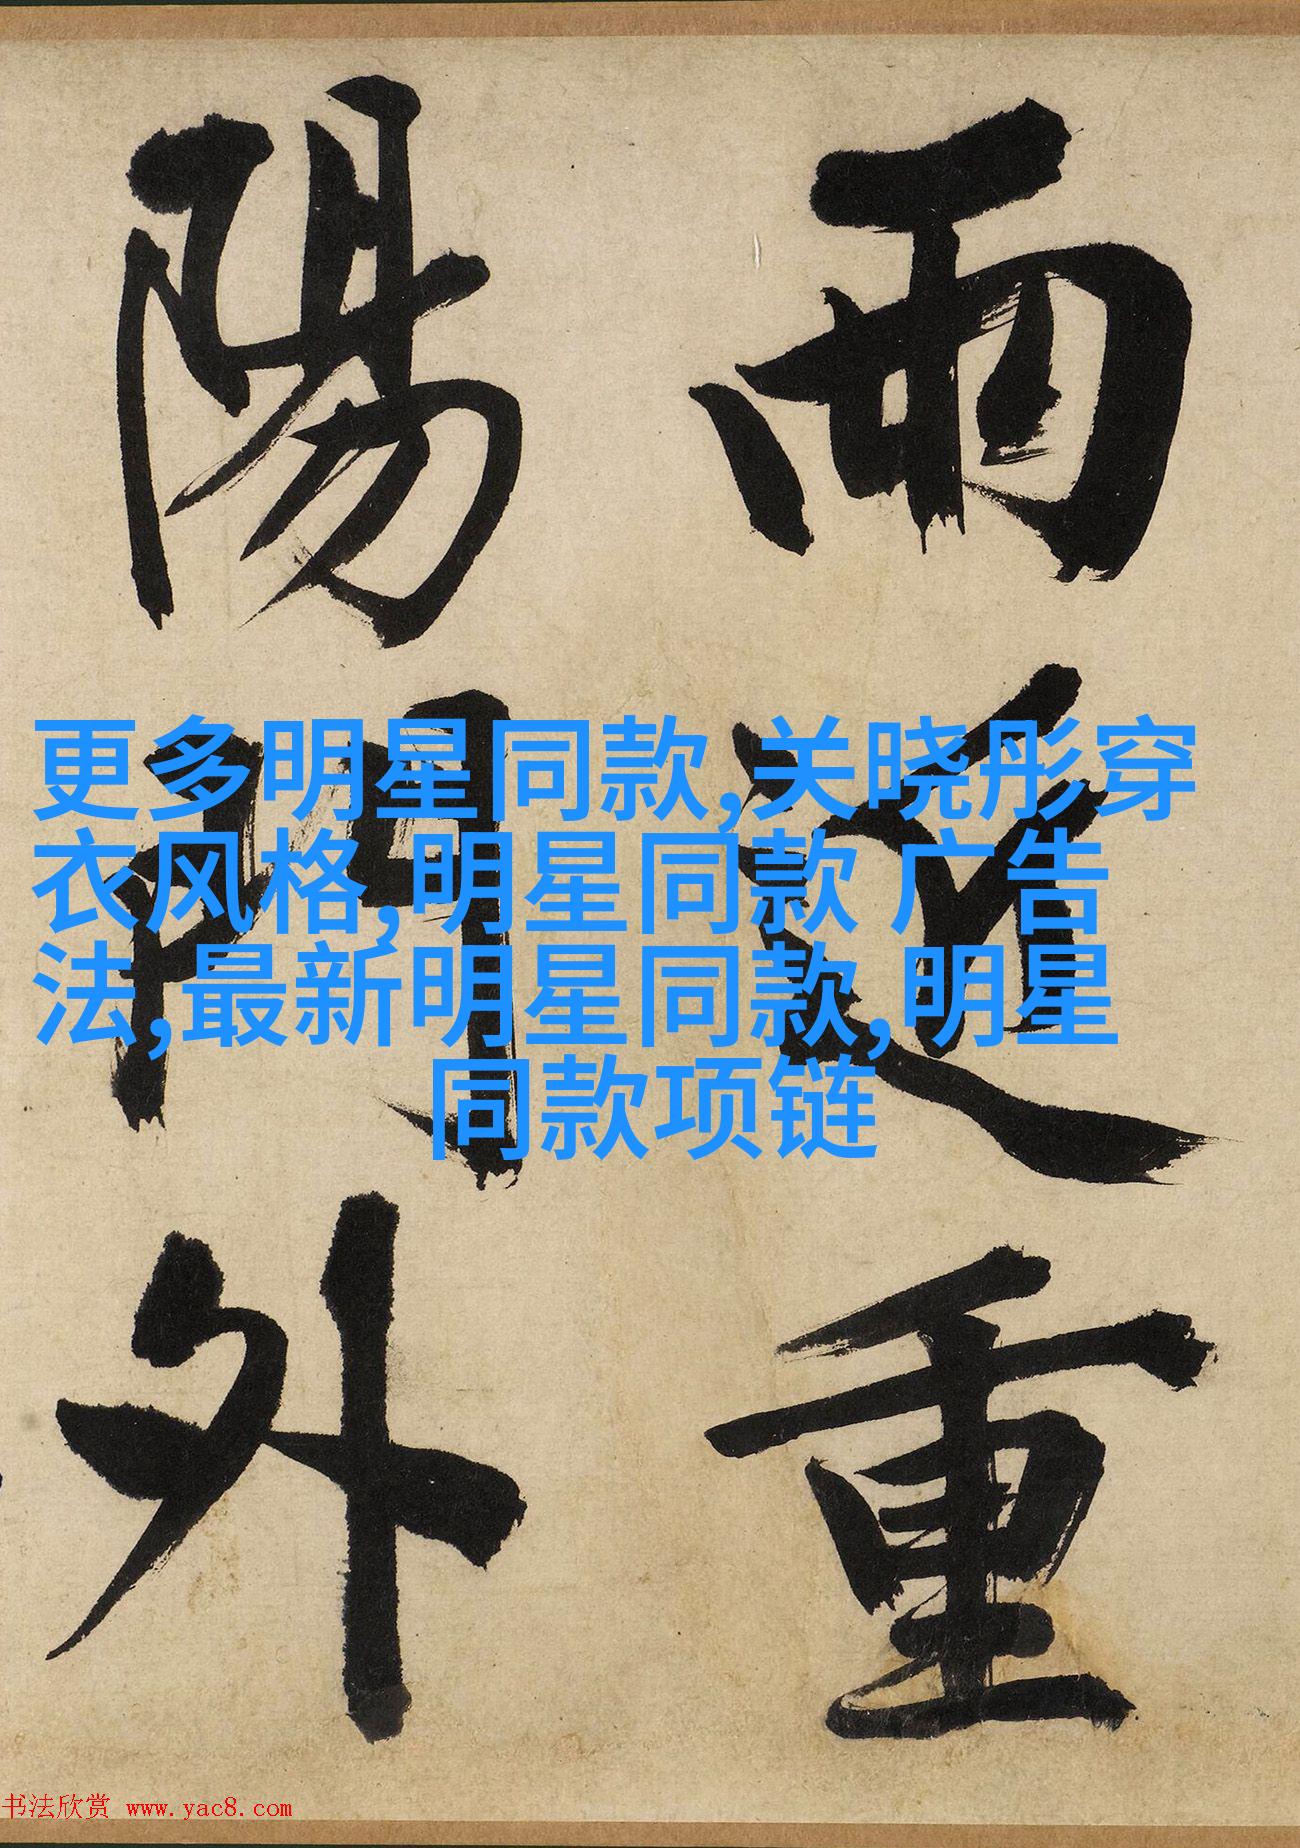 雨近重
陽門外
更多明星同款,关晓彤穿
衣风格,明星同款 广告
法,最新明星同款,明星
同款项链
书法欣赏 www.yac8.com